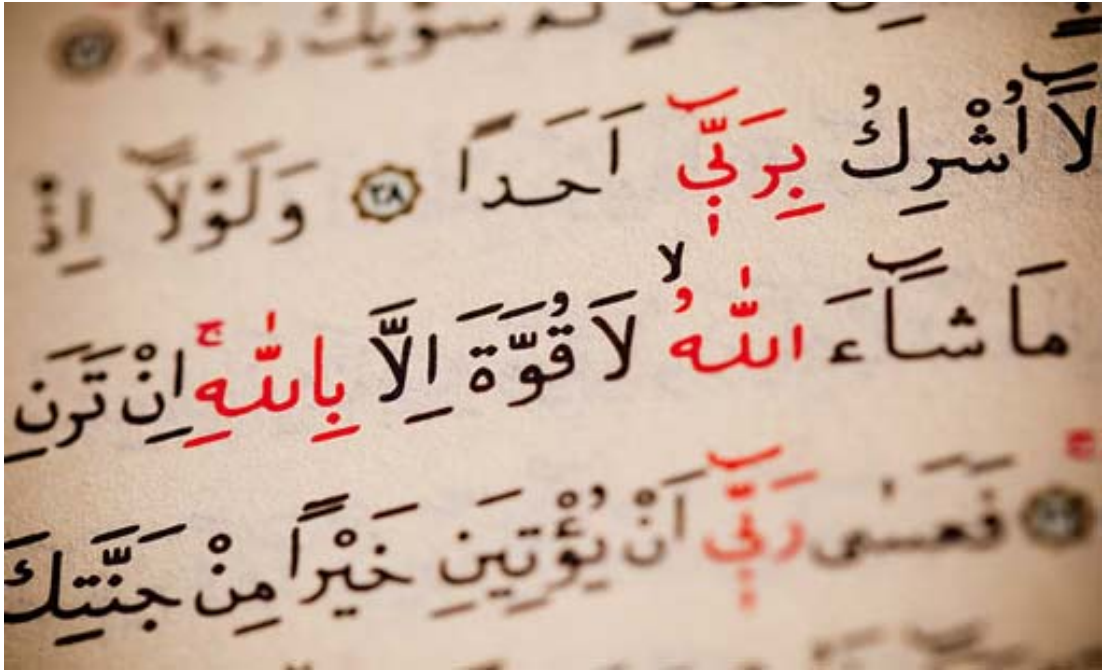 سويك رجلا
لَآ اُشْرِكُ بِرَبّ۪ٓي اَحَدًا ﴿٣٨﴾ وَلَوْلَآ اِذْ
مَا شَآءَ اللّٰهُۙ لَا قُوَّةَ اِلَّا بِاللّٰهِۚ اِنْ تَرَنِ
فَعَسٰى رَبّ۪ٓي اَنْ يُؤْتِيَنِ خَيْرًا مِنْ جَنَّتِكَ